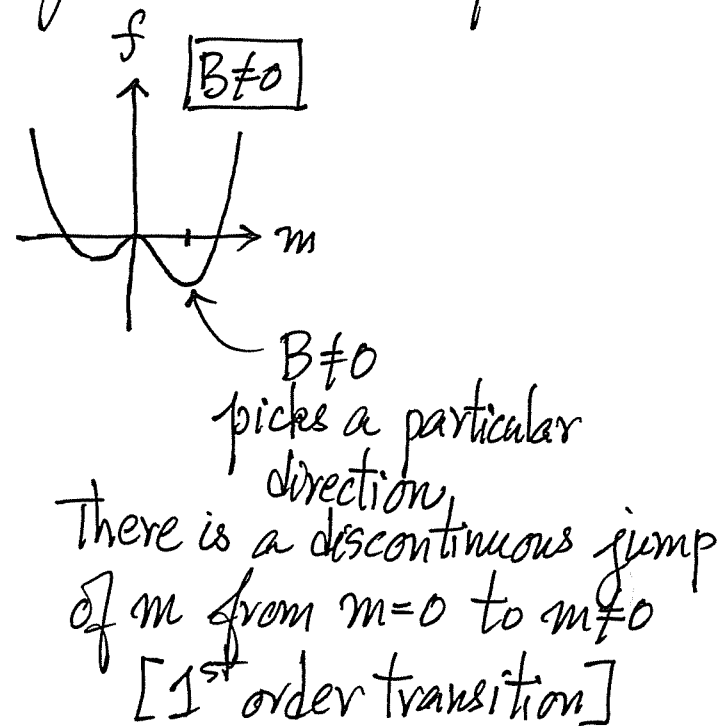 f
B≠0
m
B≠0
picks a particular
direction,
There is a discontinuous jump
of m from m=0 to m≠0
[1st order transition]